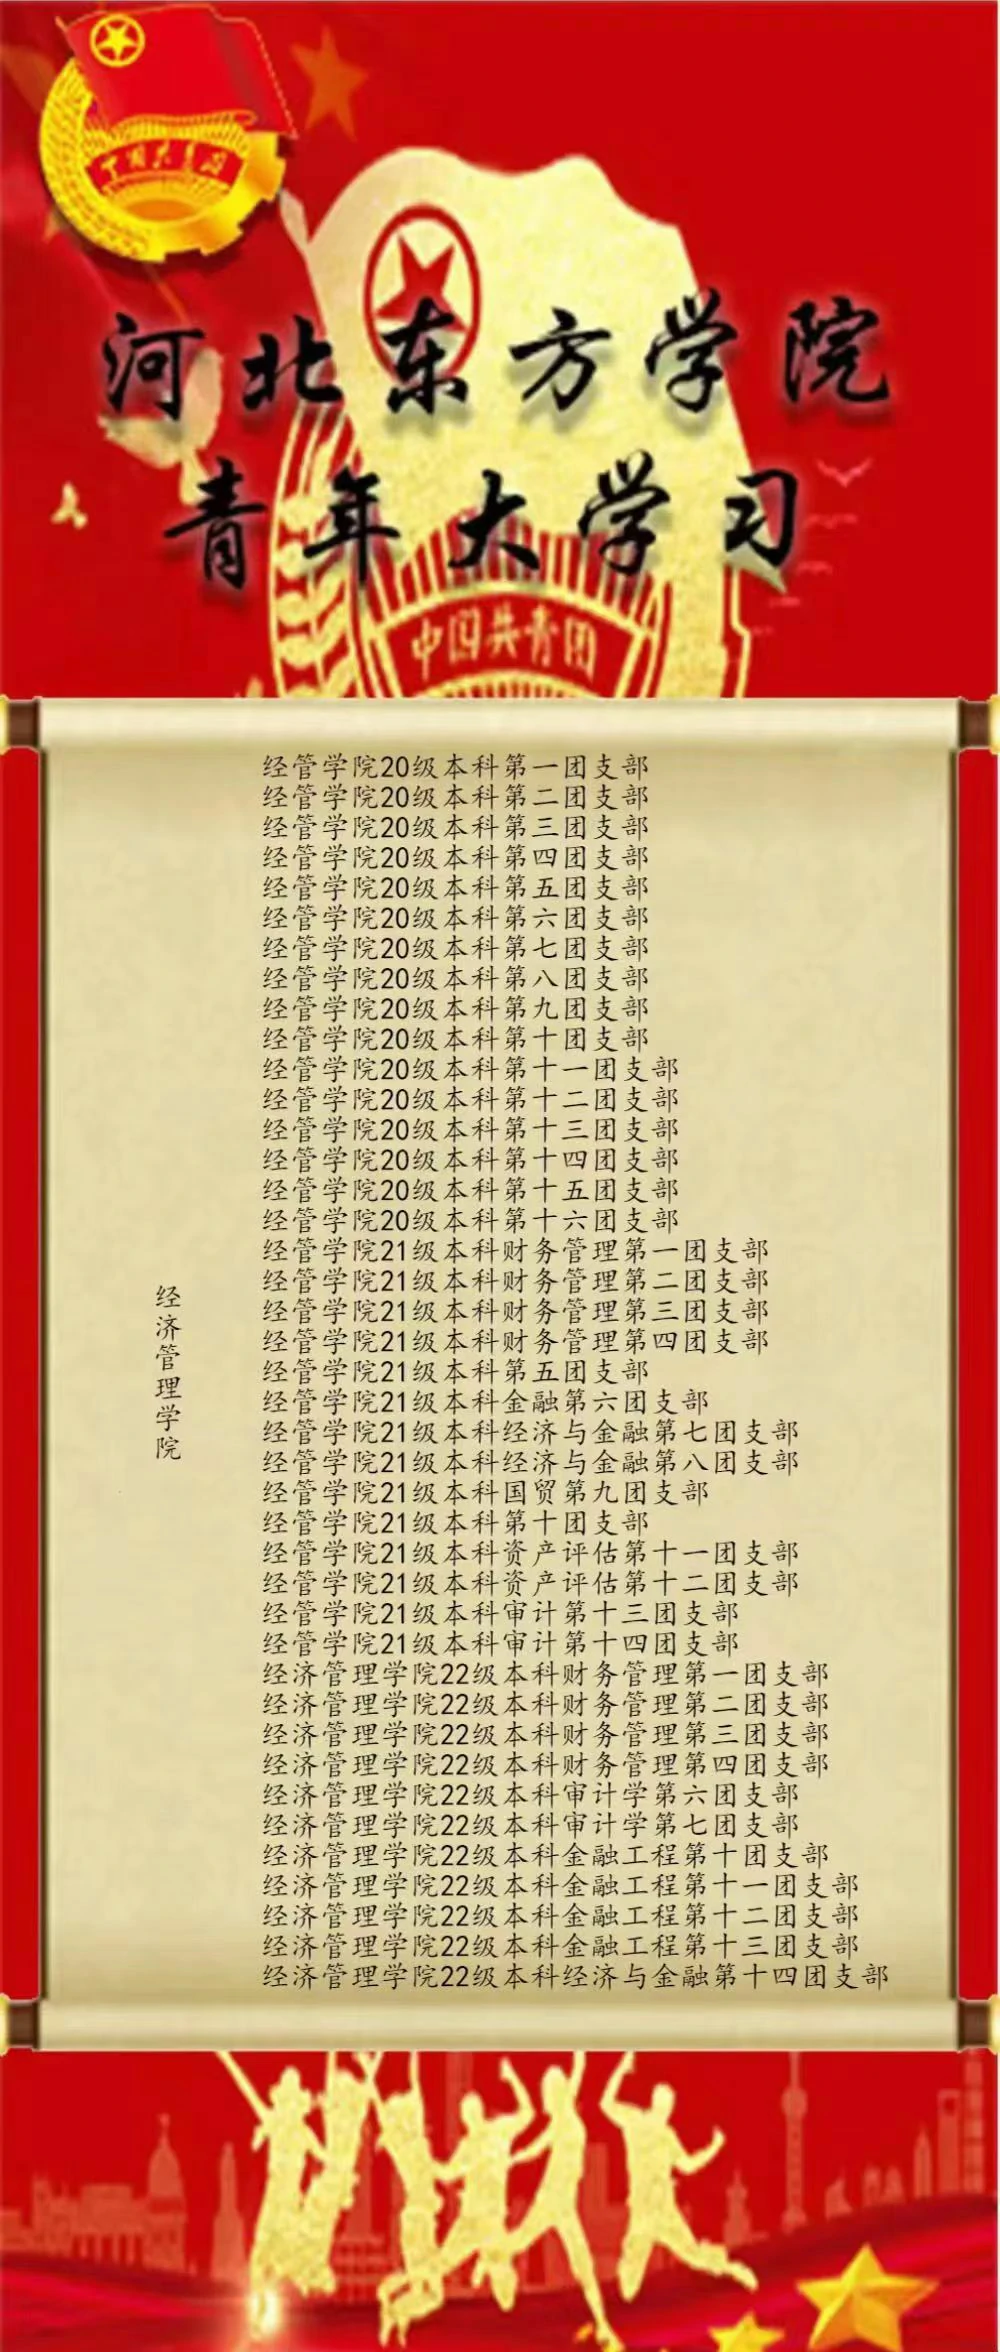 中国共青团
河北东方学院
青年大学习
中国共青团
经济管理学院
经管学院20级本科第一团支部
经管学院20级本科第二团支部
经管学院20级本科第三团支部
经管学院20级本科第四团支部
经管学院20级本科第五团支部
经管学院20级本科第六团支部
经管学院20级本科第七团支部
经管学院20级本科第八团支部
经管学院20级本科第九团支部
经管学院20级本科第十团支部
经管学院20级本科第十一团支部
经管学院20级本科第十二团支部
经管学院20级本科第十三团支部
经管学院20级本科第十四团支部
经管学院20级本科第十五团支部
经管学院20级本科第十六团支部
经管学院21级本科财务管理第一团支部
经管学院21级本科财务管理第二团支部
经管学院21级本科财务管理第三团支部
经管学院21级本科财务管理第四团支部
经管学院21级本科第五团支部
经管学院21级本科金融第六团支部
经管学院21级本科经济与金融第七团支部
经管学院21级本科经济与金融第八团支部
经管学院21级本科国贸第九团支部
经管学院21级本科第十团支部
经管学院21级本科资产评估第十一团支部
经管学院21级本科资产评估第十二团支部
经管学院21级本科审计第十三团支部
经管学院21级本科审计第十四团支部
经济管理学院22级本科财务管理第一团支部
经济管理学院22级本科财务管理第二团支部
经济管理学院22级本科财务管理第三团支部
经济管理学院22级本科财务管理第四团支部
经济管理学院22级本科审计学第六团支部
经济管理学院22级本科审计学第七团支部
经济管理学院22级本科金融工程第十团支部
经济管理学院22级本科金融工程第十一团支部
经济管理学院22级本科金融工程第十二团支部
经济管理学院22级本科金融工程第十三团支部
经济管理学院22级本科经济与金融第十四团支部